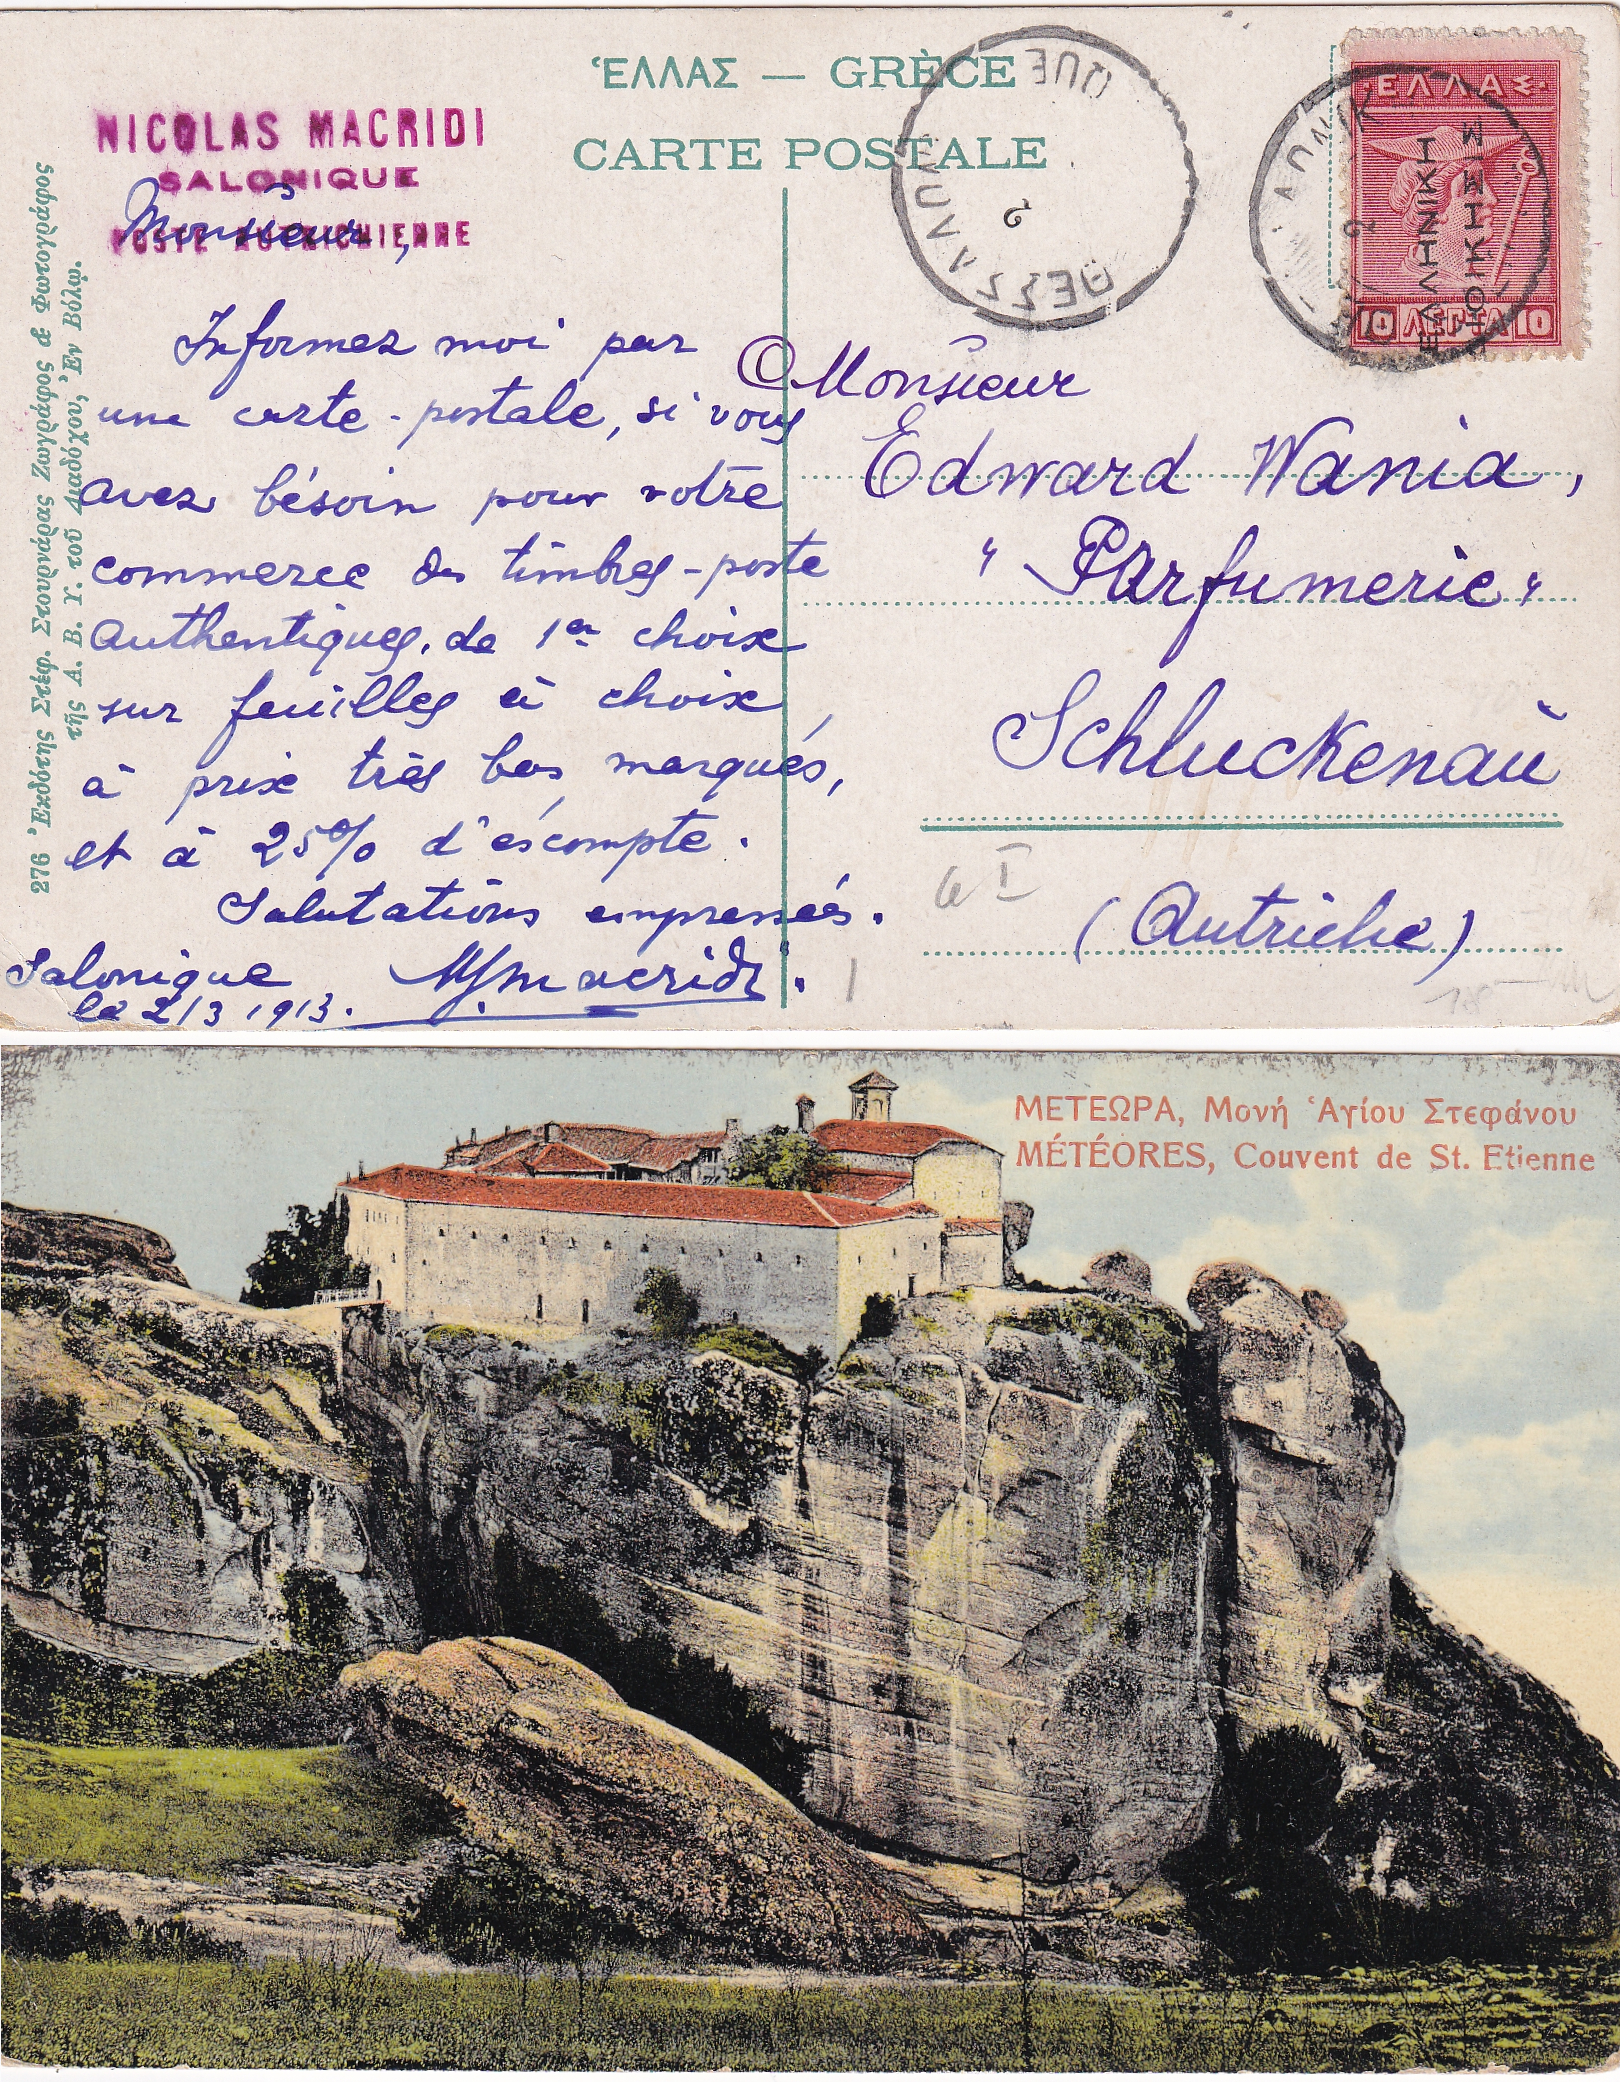 ἙΛΛΑΣ — GRÈCE
CARTE POSTALE
NICOLAS MACRIDI
SALONIQUE
POSTE AUTRICHIENNE
Monsieur,
Informez moi par
une carte-postale, si vous
avez bésoin pour votre
commerce de timbres-poste
authentiques, de 1er choix
sur feuilles à choix,
à prix très bas marqués,
et à 25% d'éscompte.
Salutations empressés.
Salonique
le 2/3 1913.
Macridi
276 Ἐκδότης Στέφ. Στουρνάρας Ζωγράφος & Φωτογράφος
τῆς Α. Β. Υ. τοῦ Διαδόχου, Ἐν Βόλῳ.
ΘΕΣΣΑΛΟΝ
QUE
ΕΛΛΑΣ
ΕΛΛΗΝΙΚΗ
ΔΙΟΙΚΗΣΙΣ
10 ΛΕΠΤΑ 10
Monsieur
Edward Wania,
"Parfumerie"
Schluckenaù
(Autriche)
ΜΕΤΕΩΡΑ, Μονή Ἁγίου Στεφάνου
MÉTÉORES, Couvent de St. Etienne